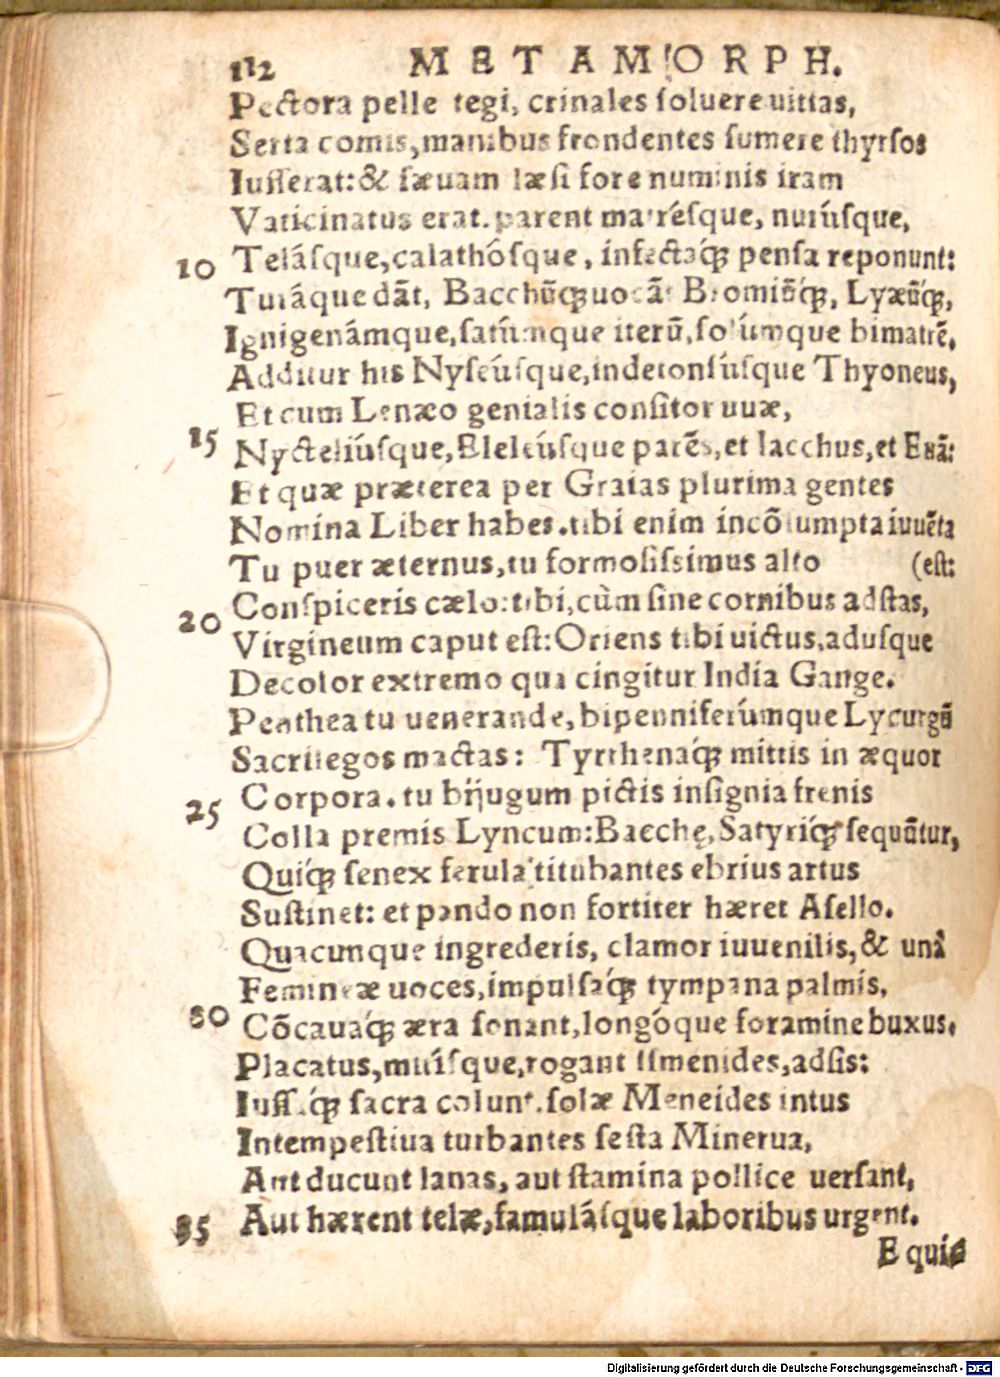 112 METAMORPH.
Pectora pelle tegi, crinales ſoluere uittas,
Serta comis, manibus frondentes ſumere thyrſos
Iuſſerat: & ſæuam læſi fore numinis iram
Vaticinatus erat. parent matréſque, nurúſque,
10 Teláſque, calathóſque, infectaq́ꝫ penſa reponunt:
Turáque dãt, Bacchũqꝫ uocãt Bromiũq́ꝫ, Lyæũq́ꝫ,
Ignigenámque, ſatúmque iterũ, ſolúmque bimatrẽ.
Additur his Nyſeúſque, indetonſúſque Thyoneus,
Et cum Lenæo genialis conſitor uuæ,
15 Nycteliúſque, Eleleúſque parẽs, et Iacchus, et Euã:
Et quæ præterea per Graias plurima gentes
Nomina Liber habes. tibi enim incõſumpta iuuẽta
Tu puer æternus, tu formoſiſsimus alto (eſt:
Conſpiceris cælo: tibi, cùm ſine cornibus adſtas,
20 Virgineum caput eſt: Oriens tibi uictus, aduſque
Decolor extremo qua cingitur India Gange.
Penthea tu uenerande, bipenniferúmque Lycurgũ
Sacrilegos mactas: Tyrrhenaq́ꝫ mittis in æquor
Corpora. tu bijugum pictis inſignia frenis
25 Colla premis Lyncum: Bacchę, Satyriq́ꝫ ſequũtur,
Quiq́ꝫ ſenex ferula titubantes ebrius artus
Suſtinet: et pando non fortiter hæret Aſello.
Quacunque ingrederis, clamor iuuenilis, & unâ
Femineæ uoces, impulſaq́ꝫ tympana palmis,
30 Cõcauaq́ꝫ æra ſonant, longóque foramine buxus.
Placatus, mitíſque, rogant Iſmenides, adſis:
Iuſſaq́ꝫ ſacra colunt. ſolæ Meneides intus
Intempeſtiua turbantes feſta Minerua,
Aut ducunt lanas, aut ſtamina pollice uerſant,
35 Aut hærent telæ, famuláſque laboribus urgent.
E quis
Digitalisierung gefördert durch die Deutsche Forschungsgemeinschaft - DFG